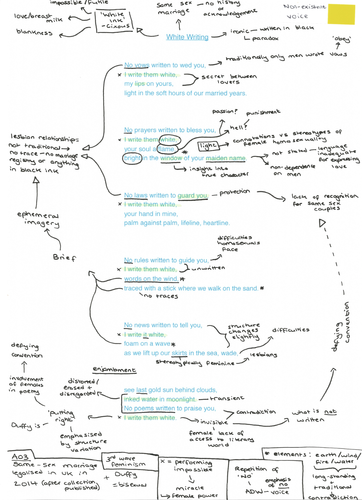 impossible/futile
love/breast milk
blankness
'white ink' - Cixous
same sex marriage
no history or acknowledgement
Non-existent voice
White Writing
ironic - written in black
↳ paradox
'obey'
No vows written to wed you,
traditionally only men wrote vows
* I write them white,
my lips on yours,
secret between lovers
light in the soft hours of our married years.
No prayers written to bless you,
passion?
punishment
hell?
* I write them white,
your soul a flame,
light
connotations vs stereotypes of female homosexuality
bright in the window of your maiden name.
↳ insights into character
not stated - language inadequate for expressing love
↳ non-dependente on men
lesbian relationships not traditional → no trace - no marriage registry or anything in black ink
No laws written to guard you,
protection
* I write them white,
your hand in mine,
palm against palm, lifeline, heartline.
lack of recognition for same sex couples
ephemeral imagery
Brief
No rules written to guide you,
difficulties homosexuals face
* I write them white,
unwritten
words on the wind,
traced with a stick where we walk on the sand.
no traces
No news written to tell you,
structure changes slightly
* I write it white,
difficulties
foam on a wave
as we lift up our skirts in the sea, wade,
lesbians
stereotypically feminine
defying convention
defying convention
enjambment
distorted/erased + disregarded
involvement of females in poetry
see last gold sun behind clouds,
inked water in moonlight.
transient
No poems written to praise you,
* I write them white.
contradiction
what is not written
invisible
'putting right'
Duffy is
emphasised by structure variation
female lack of access to literary world
AO3
Same-sex marriage legalised in UK in 2014 (after collection published)
3rd wave feminism
+ Duffy = bisexual
* = performing impossible
miracle
↳ female power
Repetition of 'NO'
emphasis of no ADW - voice
* elements: earth/wind/fire/water
long-standing + traditional
contradiction